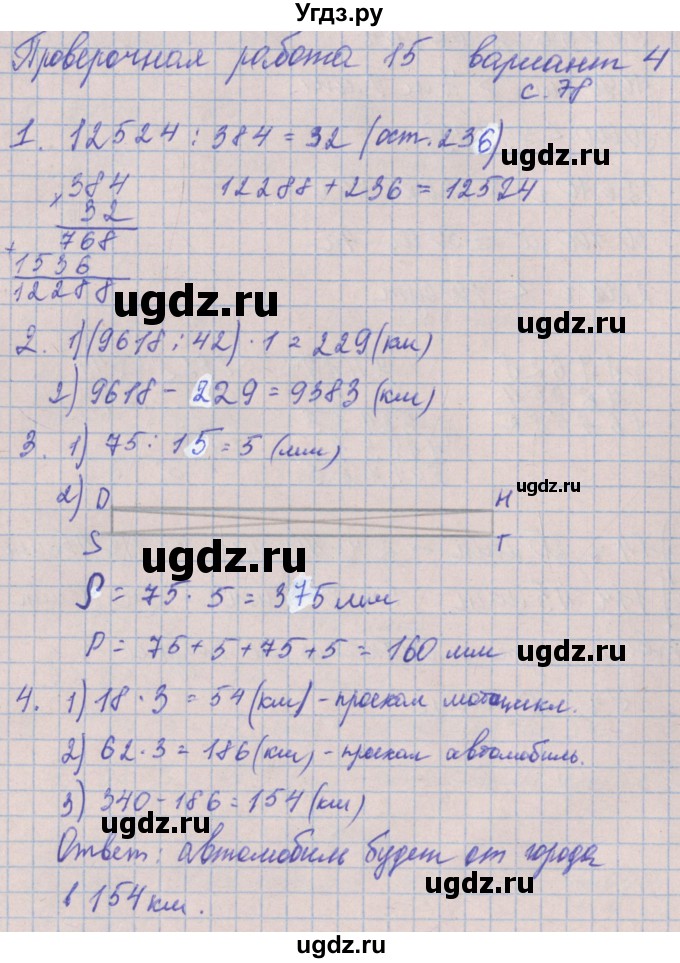 Угдз.ру
Проверочная работа 15 вариант 4
с. 78
1. 12524 : 384 = 32 (ост. 236)
× 384 12288 + 236 = 12524
32
768
+ 1536
12288
ugdz.ru
ugdz.ru
2. 1) (9618 : 42) · 1 = 229 (км)
2) 9618 - 229 = 9383 (км)
3. 1) 75 : 15 = 5 (мм)
ugdz.ru
2) D H
S T
ugdz.ru
S = 75 · 5 = 375 мм
ugdz.ru
P = 75 + 5 + 75 + 5 = 160 мм
ugdz.ru
4. 1) 18 · 3 = 54 (км) - проехал мотоцикл.
2) 62 · 3 = 186 (км) - проехал автомобиль.
3) 340 - 186 = 154 (км)
ugdz.ru
ugdz.ru
Ответ: автомобиль будет от города
в 154 км.
ugdz.ru
ugdz.ru